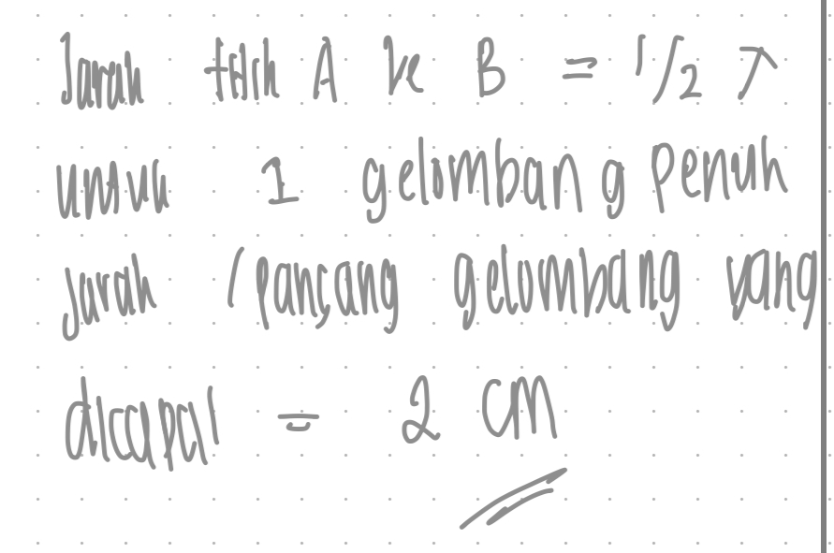 Jarak titik A ke B = 1/2 λ
untuk 1 gelombang penuh
jarak / panjang gelombang yang
dicapai = 2 cm